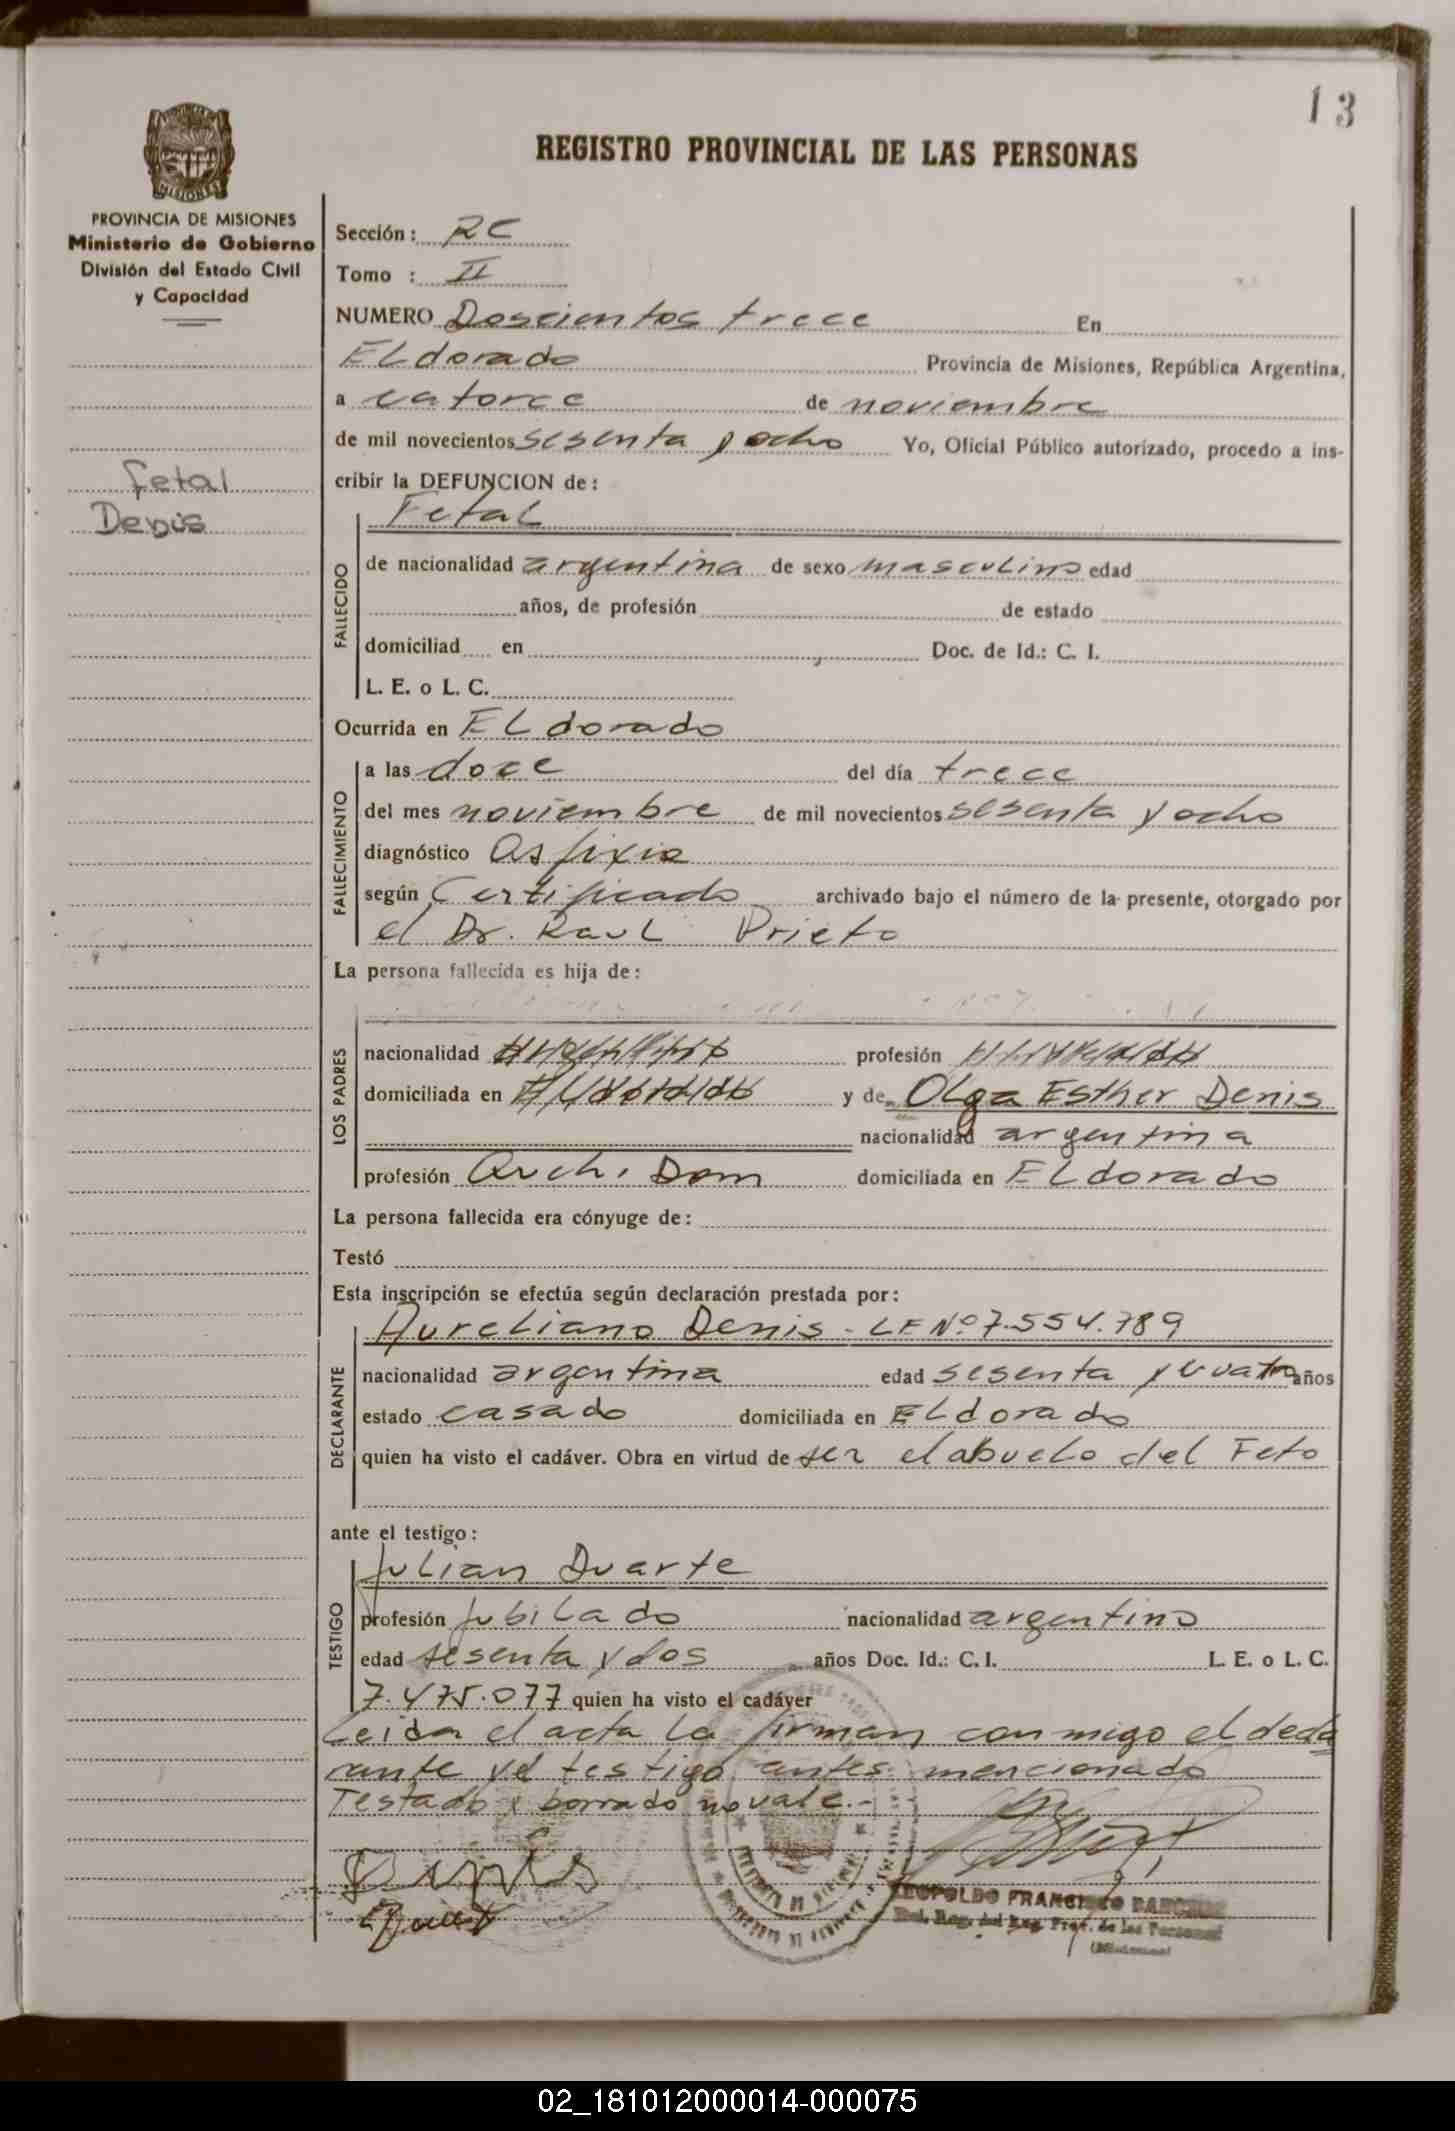 13
REGISTRO PROVINCIAL DE LAS PERSONAS
MISIONES
PROVINCIA DE MISIONES
Ministerio de Gobierno
División del Estado Civil
y Capacidad
Fetal
Denis
Sección: RC
Tomo : II
NUMERO Doscientos trece En
ELdorado Provincia de Misiones, República Argentina,
a catorce de noviembre
de mil novecientos sesenta y ocho Yo, Oficial Público autorizado, procedo a ins-
cribir la DEFUNCION de:
Fetal
FALLECIDO
de nacionalidad argentina de sexo masculino edad
años, de profesión de estado
domiciliad en Doc. de Id.: C. I.
L. E. o L. C.
Ocurrida en ELdorado
FALLECIMIENTO
a las doce del día trece
del mes noviembre de mil novecientos sesenta y ocho
diagnóstico Asfixia
según Certificado archivado bajo el número de la presente, otorgado por
el Dr. Raul Prieto
La persona fallecida es hija de:
LOS PADRES
nacionalidad profesión
domiciliada en y de Olga Esther Denis
nacionalidad argentina
profesión Queh. Dom domiciliada en ELdorado
La persona fallecida era cónyuge de:
Testó
Esta inscripción se efectúa según declaración prestada por:
DECLARANTE
Aureliano Denis - LE Nº 7.554.789
nacionalidad argentina edad sesenta y cuatro años
estado casado domiciliada en ELdorado
quien ha visto el cadáver. Obra en virtud de ser el abuelo del Feto
ante el testigo:
TESTIGO
Julian Duarte
profesión jubilado nacionalidad argentino
edad sesenta y dos años Doc. Id.: C. I. L. E. o L. C.
7.475.077 quien ha visto el cadáver
Leida el acta la firman conmigo el decla
rante y el testigo antes mencionado
Testado y borrado no vale.-
Denis
LEOPOLDO FRANCISCO
Del. Reg. del Reg. Prov. de las Personas
(Misiones)
02_181012000014-000075